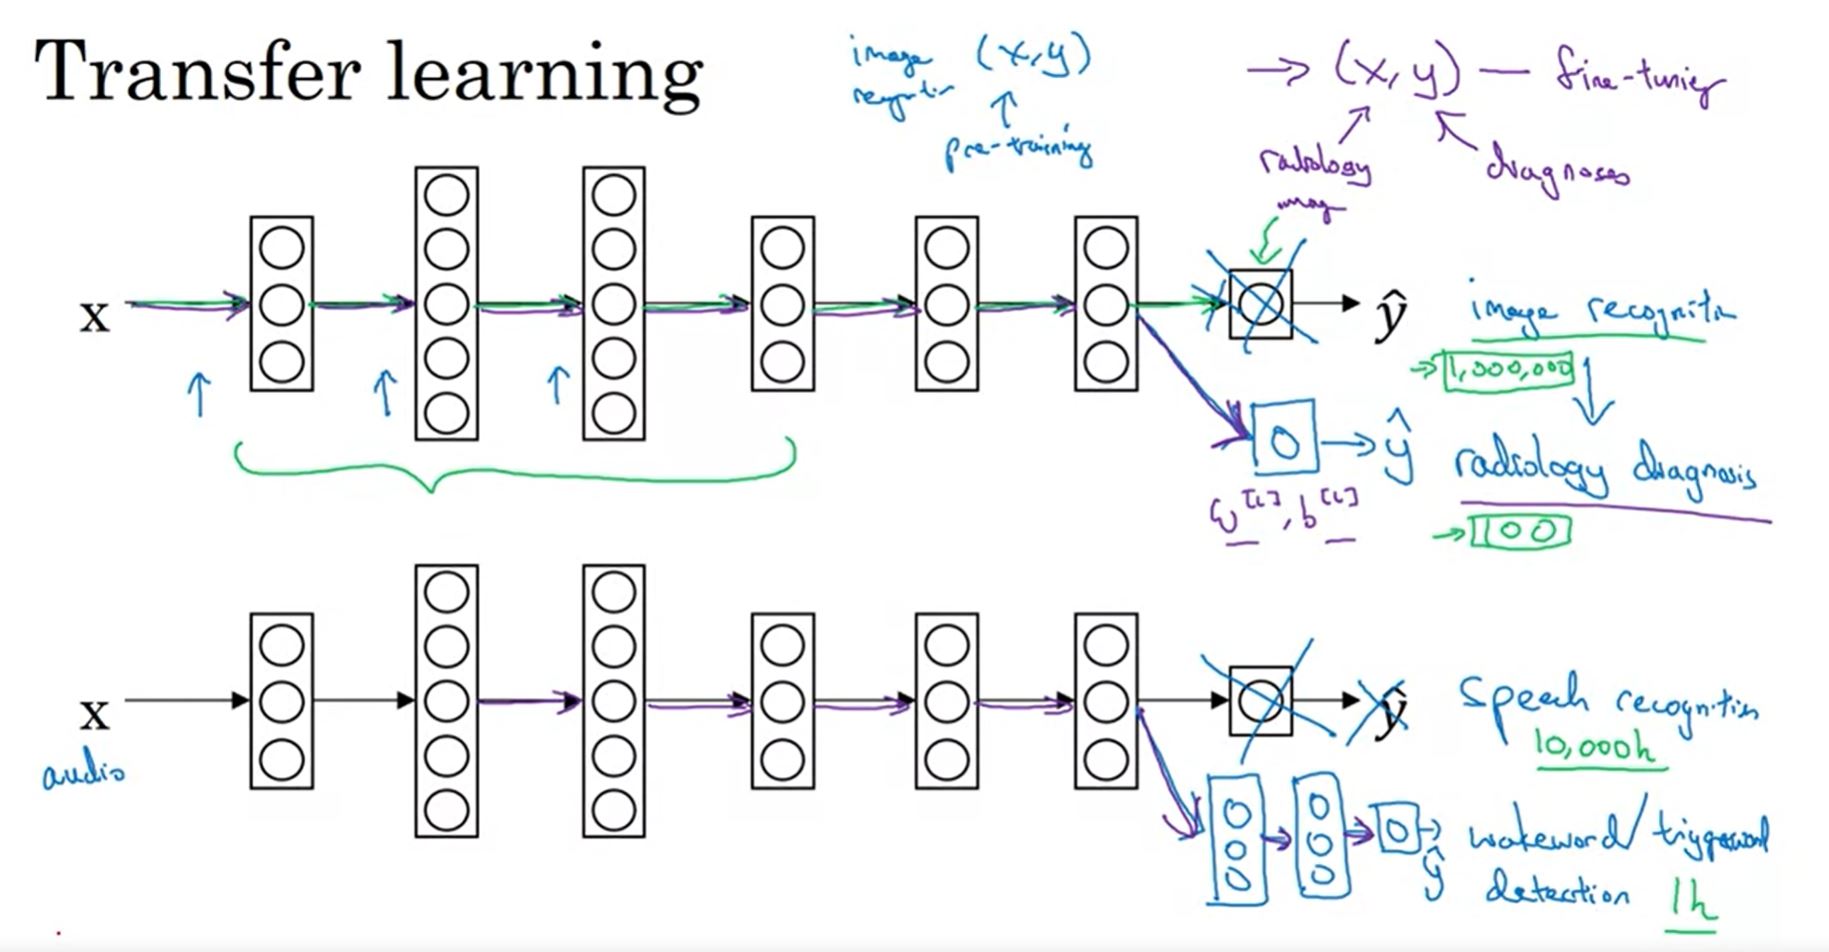 Transfer learning
image (x,y)
pre-training
→ (x,y) — fine-tuning
radiology
diagnoses
x
ŷ
image recognition
→ 1,000,000
ŷ
radiology diagnosis
w[L], b[L]
→ 100
x
audio
ŷ
Speech recognition
10,000h
ŷ
wakeword/triggerword
detection 1h